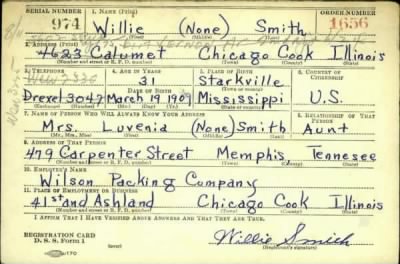 SERIAL NUMBER 1. NAME (Print) ORDER NUMBER
974 Willie (None) Smith 1656
(First) (Middle) (Last)
2. ADDRESS (Print)
4623 Calumet Chicago Cook Illinois
(Number and street or R. F. D. number) (Town) (County) (State)
3. TELEPHONE 4. AGE IN YEARS 5. PLACE OF BIRTH 6. COUNTRY OF CITIZENSHIP
31 Starkville
DATE OF BIRTH (Town or county)
Drexel 3047 March 19 1909 Mississippi U.S.
(Exchange) (Number) (Mo.) (Day) (Yr.) (State or country)
7. NAME OF PERSON WHO WILL ALWAYS KNOW YOUR ADDRESS 8. RELATIONSHIP OF THAT PERSON
Mrs. Luvenia (None) Smith Aunt
(Mr., Mrs., Miss) (First) (Middle) (Last)
9. ADDRESS OF THAT PERSON
479 Carpenter Street Memphis Tennesee
(Number and street or R. F. D. number) (Town) (County) (State)
10. EMPLOYER'S NAME
Wilson Packing Company
11. PLACE OF EMPLOYMENT OR BUSINESS
41st and Ashland Chicago Cook Illinois
(Number and street or R. F. D. number) (Town) (County) (State)
I AFFIRM THAT I HAVE VERIFIED ABOVE ANSWERS AND THAT THEY ARE TRUE.
REGISTRATION CARD
D. S. S. Form 1 (over) Willie Smith
(Registrant's signature)